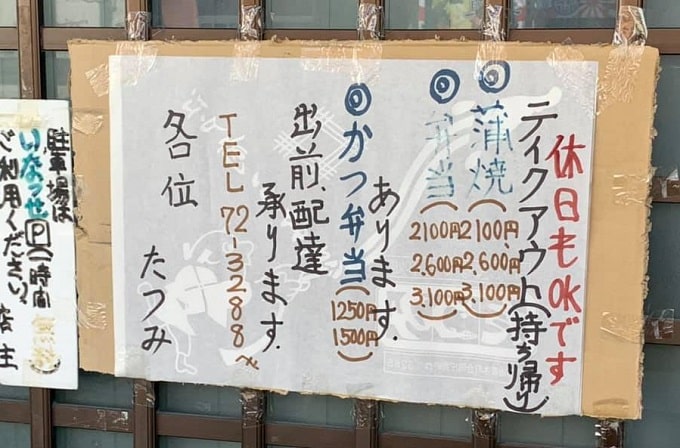 休日もOKです
テイクアウト(持ち帰り)
◎蒲焼(2,100円、2,600円、3,100円)
◎弁当(2100円2,600円3,100円)
あります。
◎かつ弁当(1250円1500円)
出前、配達
承ります。
TEL 72-3288へ
各位
たつみ
駐車場は
いなっせP(一時間
ご利用ください。店主